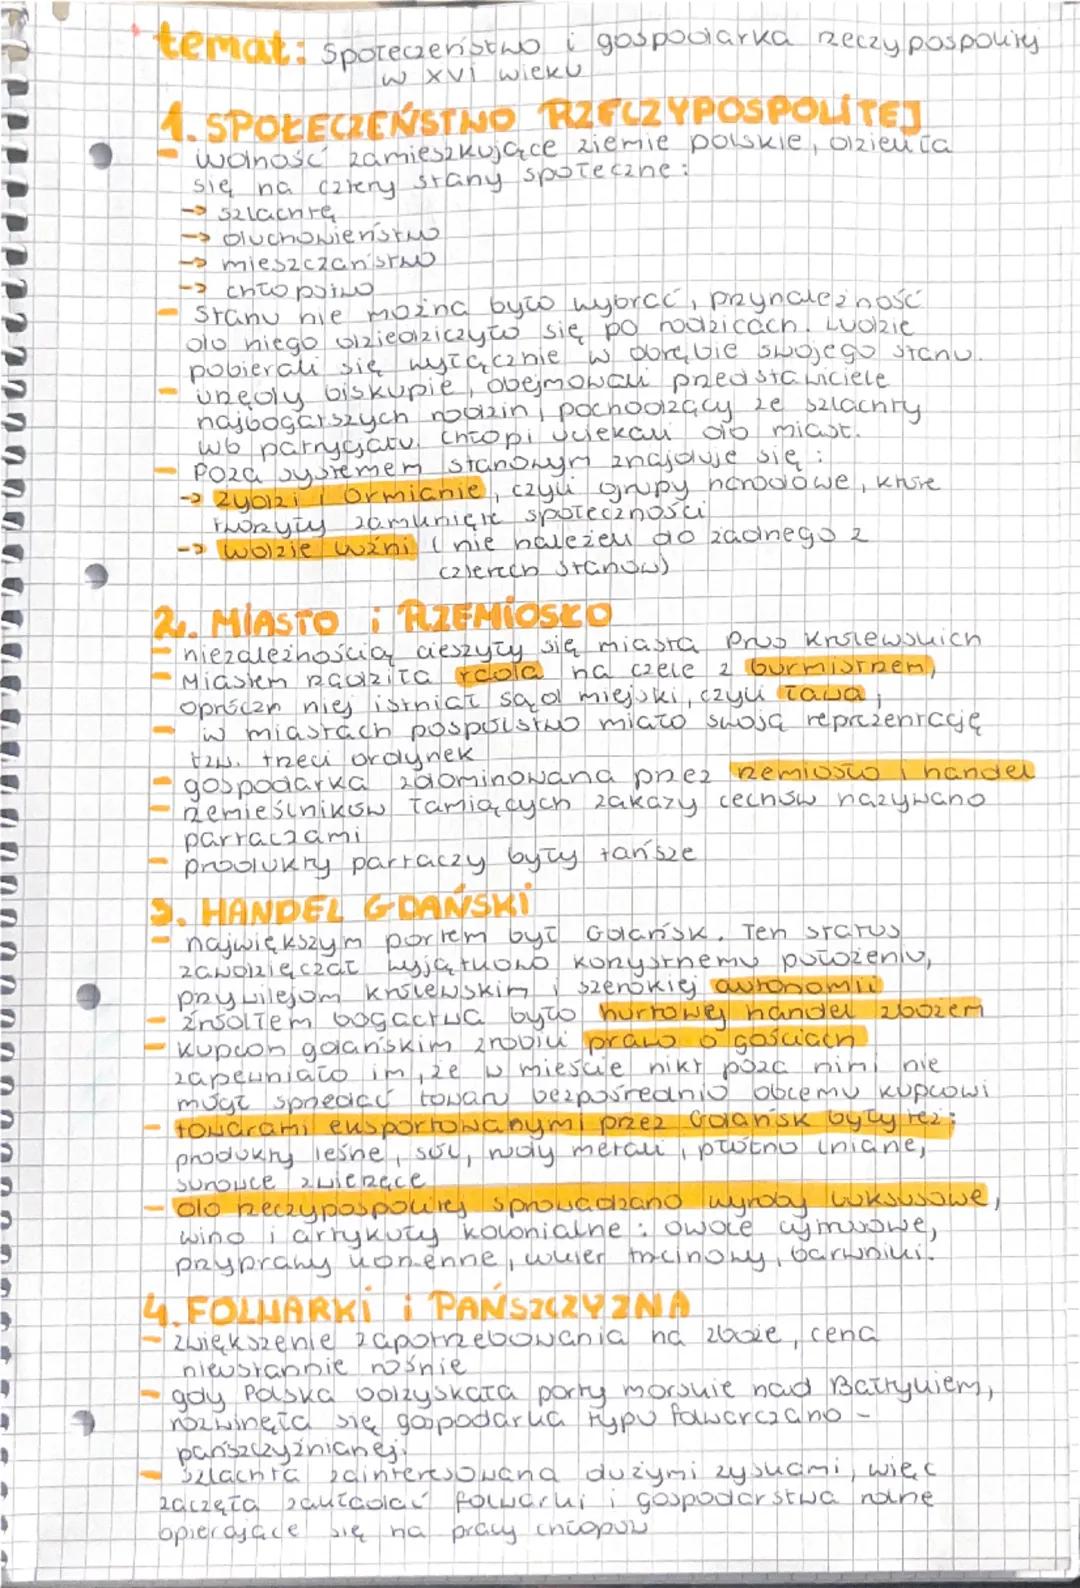 temat: Społeczeństwo i gospodarka rzeczypospolitej
w XVI wieku
1. SPOŁECZEŃSTWO RZECZYPOSPOLITEJ
- wolność zamieszkujące ziemie polskie, dzieliła
się na cztery stany społeczne:
→ szlachtę
→ duchowieństwo
→ mieszczaństwo
→ chłopstwo
- Stanu nie można było wybrać, przynależność
do niego dziedziczyło się po rodzicach. Ludzie
pobierali się wyłącznie w obrębie swojego stanu.
- urzędy biskupie, obejmowali przedstawiciele
najbogatszych rodzin, pochodzący ze szlachty
lub patrycjatu. Chłopi uciekali do miast.
- Poza systemem stanowym znajduje się:
→ Żydzi i Ormianie, czyli grupy narodowe, które
tworzyły zamknięte społeczności
→ ludzie luźni (nie należeli do żadnego z
czterech stanów)
2. MIASTO i RZEMIOSŁO
- niezależnością cieszyły się miasta Prus Królewskich
- Miastem rządziła rada na czele z burmistrzem,
oprócz niej istniał sąd miejski, czyli ława,
- w miastach pospólstwo miało swoją reprezentację
tzw. trzeci ordynek
- gospodarka zdominowana przez rzemiosło i handel
- rzemieślników łamiących zakazy cechów nazywano
partaczami
- produkty partaczy były tańsze
3. HANDEL GDAŃSKI
- największym portem był Gdańsk. Ten status
zawdzięczał wyjątkowo korzystnemu położeniu,
przywilejom królewskim i szerokiej autonomii
- źródłem bogactwa było hurtowej handel zbożem
- kupcom gdańskim zrobili prawo o gościach
zapewniało im, że w mieście nikt poza nimi nie
mógł sprzedać towary bezpośrednio obcemu kupcowi
- towarami eksportowanymi przez Gdańsk były też:
produkty leśne, sól, rudy metali, płótno lniane,
surowce zwierzęce
- do rzeczypospolitej sprowadzano wyroby luksusowe,
wino i artykuły kolonialne: owoce cytrusowe,
przyprawy korzenne, cukier trzcinowy, barwniki.
4. FOLWARKI i PAŃSZCZYZNA
- zwiększenie zapotrzebowania na zboże, cena
nieustannie rośnie
- gdy Polska odzyskała porty morskie nad Bałtykiem,
rozwinęła się gospodarka typu folwarczano -
pańszczyźnianej.
- szlachta zainteresowana dużymi zyskami, więc
zaczęła zakładać folwarki i gospodarstwa rolne
opierające się na pracy chłopów